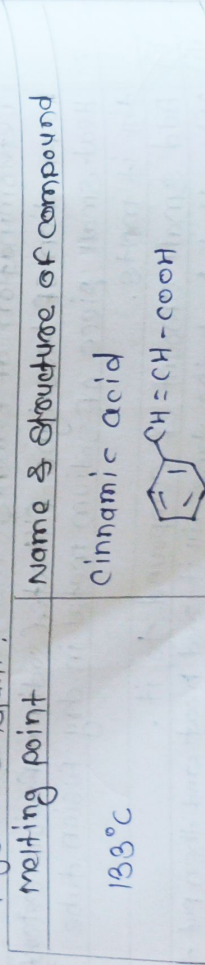 Melting point
Name & Structure of compound
133°C
Cinnamic acid
CH=CH-COOH